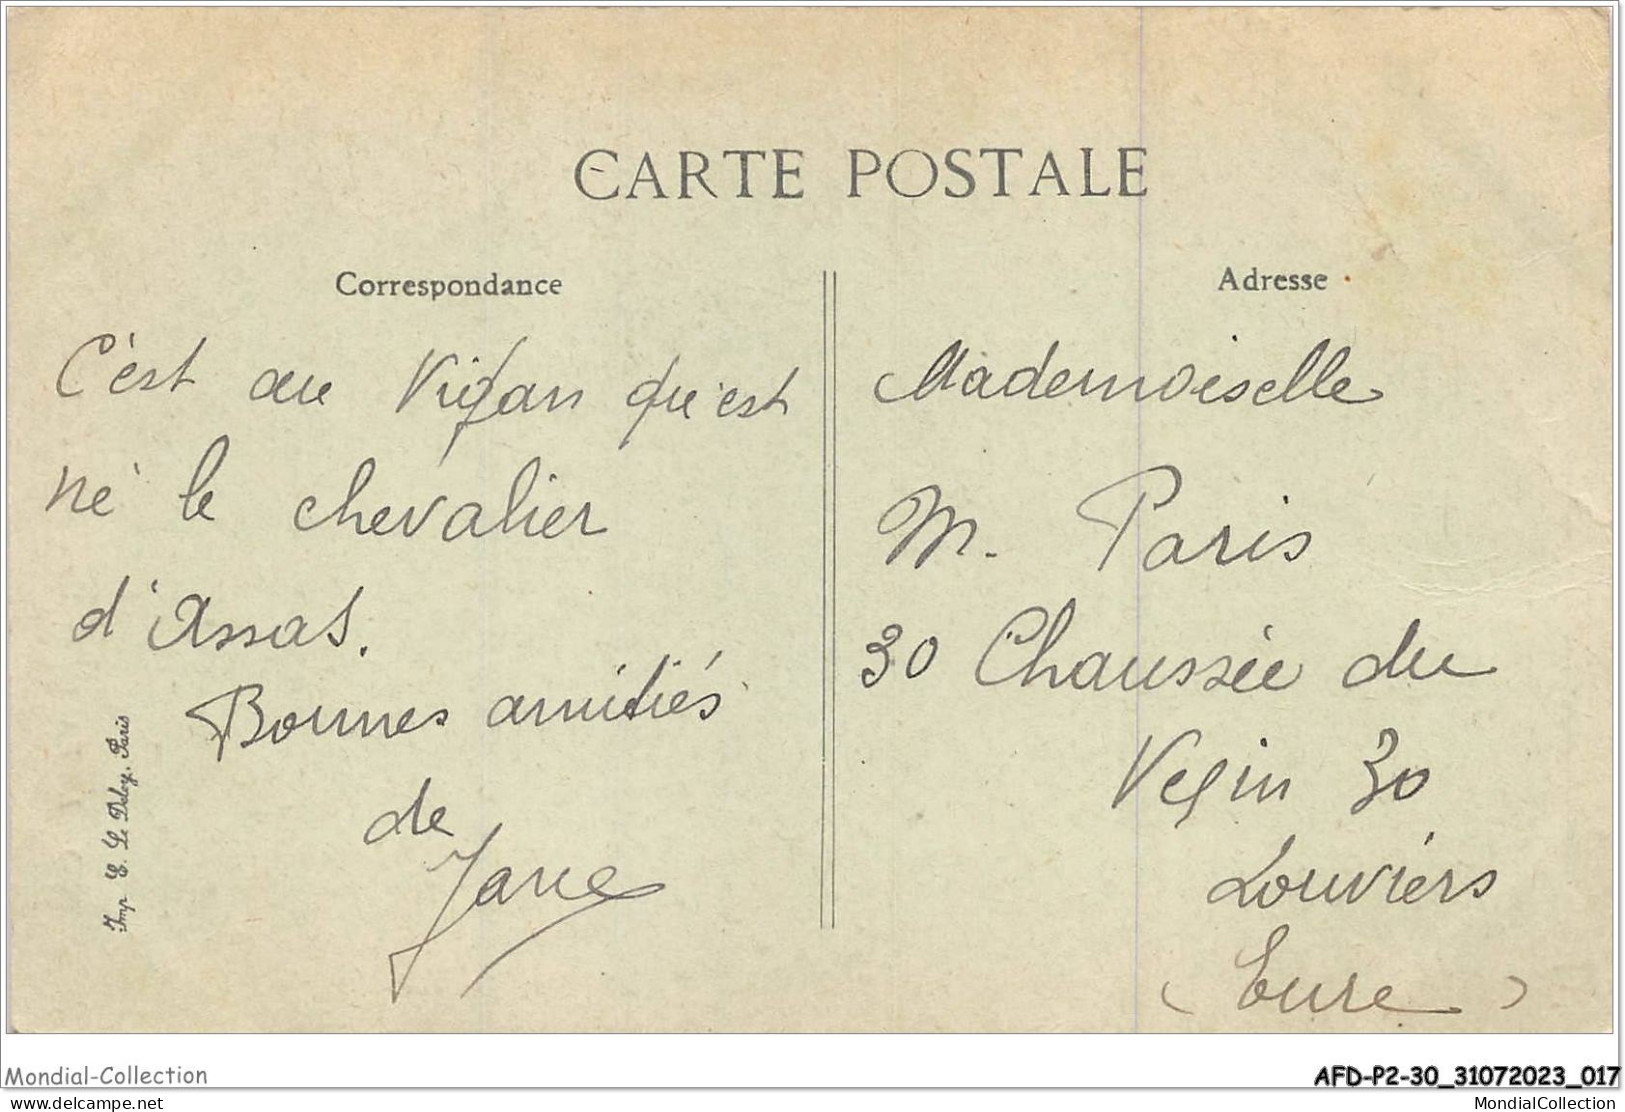 CARTE POSTALE
Correspondance
C'est au Vigan qu'est
né le chevalier
d'Assas.
Bonnes amitiés
de
Jane
Imp. E. Le Deley, Paris
Adresse
Mademoiselle
M. Paris
30 Chaussée du
Vexin 30
Louviers
(Eure)
Mondial-Collection
AFD-P2-30_31072023_017
delcampe.net
MondialCollection